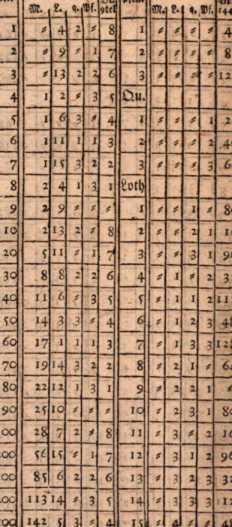 M. L. q. Pf. 9tel M. L. q. Pf. 144
1 〃 4 2 〃 8 1 〃 〃 〃 〃 4
2 〃 9 〃 1 7 2 〃 〃 〃 〃 8
3 〃 13 2 2 6 3 〃 〃 〃 〃 12
4 1 2 〃 3 Qu.
5 1 6 3 〃 4 1 〃 〃 〃 1 2
6 1 11 1 1 3 2 〃 〃 〃 2 4
7 1 15 3 2 2 3 〃 〃 〃 3 6
8 2 4 1 3 1 Loth
9 2 9 〃 〃 〃 1 〃 〃 1 〃 8
10 2 13 2 〃 8 2 〃 〃 2 1 1
20 5 11 〃 1 7 3 〃 〃 3 1 9
30 8 8 2 2 6 4 〃 1 〃 2 3
40 11 6 〃 3 5 5 〃 1 1 2 11
50 14 3 3 〃 4 6 〃 1 2 3 4
60 17 1 1 1 3 7 〃 1 3 3 128
70 19 14 3 2 2 8 〃 2 1 〃 6
80 22 12 1 3 1 9 〃 2 2 1 〃
90 25 10 〃 〃 〃 10 〃 2 3 1 8
00 28 7 2 〃 8 11 〃 3 〃 2 16
00 56 15 〃 1 7 12 〃 3 1 2 96
00 85 6 2 2 6 13 〃 3 2 3 3
00 113 14 〃 3 5 14 〃 3 3 3 11
00 142 5 3 〃 4 15